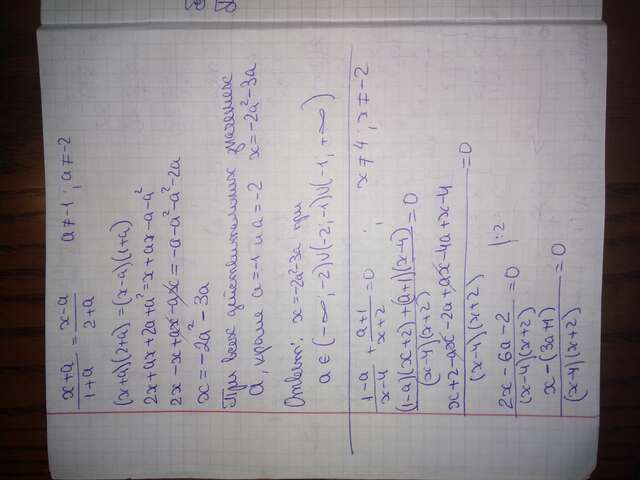 (x+a)/(1+a) = (x-a)/(2+a)   a≠-1; a≠-2
(x+a)(2+a)=(x-a)(1+a)
2x+ax+2a+a²=x+ax-a-a²
2x-x+ax-ax=-a-a²-a²-2a
x=-2a²-3a
При всех действительных значениях
a, кроме a=-1 и a=-2   x=-2a²-3a
Ответ: x=-2a²-3a при
a∈(-∞;-2)∪(-2;-1)∪(-1,+∞)
(1-a)/(x-4) + (a+1)/(x+2) =0;   x≠4; x≠-2
((1-a)(x+2)+(a+1)(x-4))/((x-4)(x+2)) =0
(x+2-ax-2a+ax-4a+x-4)/((x-4)(x+2)) =0
(2x-6a-2)/((x-4)(x+2)) =0   |:2
(x-(3a+1))/((x-4)(x+2)) =0